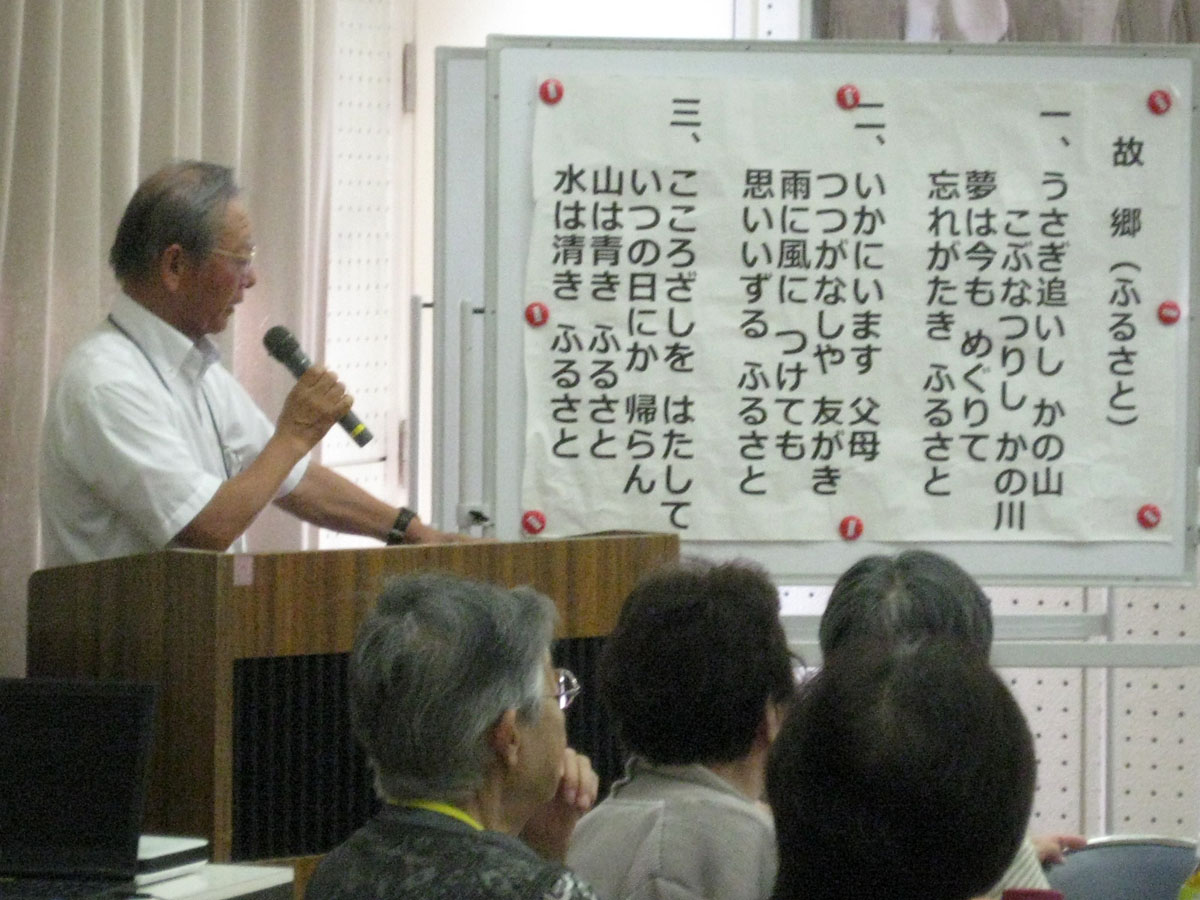 故 郷（ふるさと）
一、うさぎ追いし かの山
こぶなつりし かの川
夢は今も めぐりて
忘れがたき ふるさと
二、いかにいます 父母
つつがなしや 友がき
雨に風に つけても
思いいずる ふるさと
三、こころざしを はたして
いつの日にか 帰らん
山は青き ふるさと
水は清き ふるさと